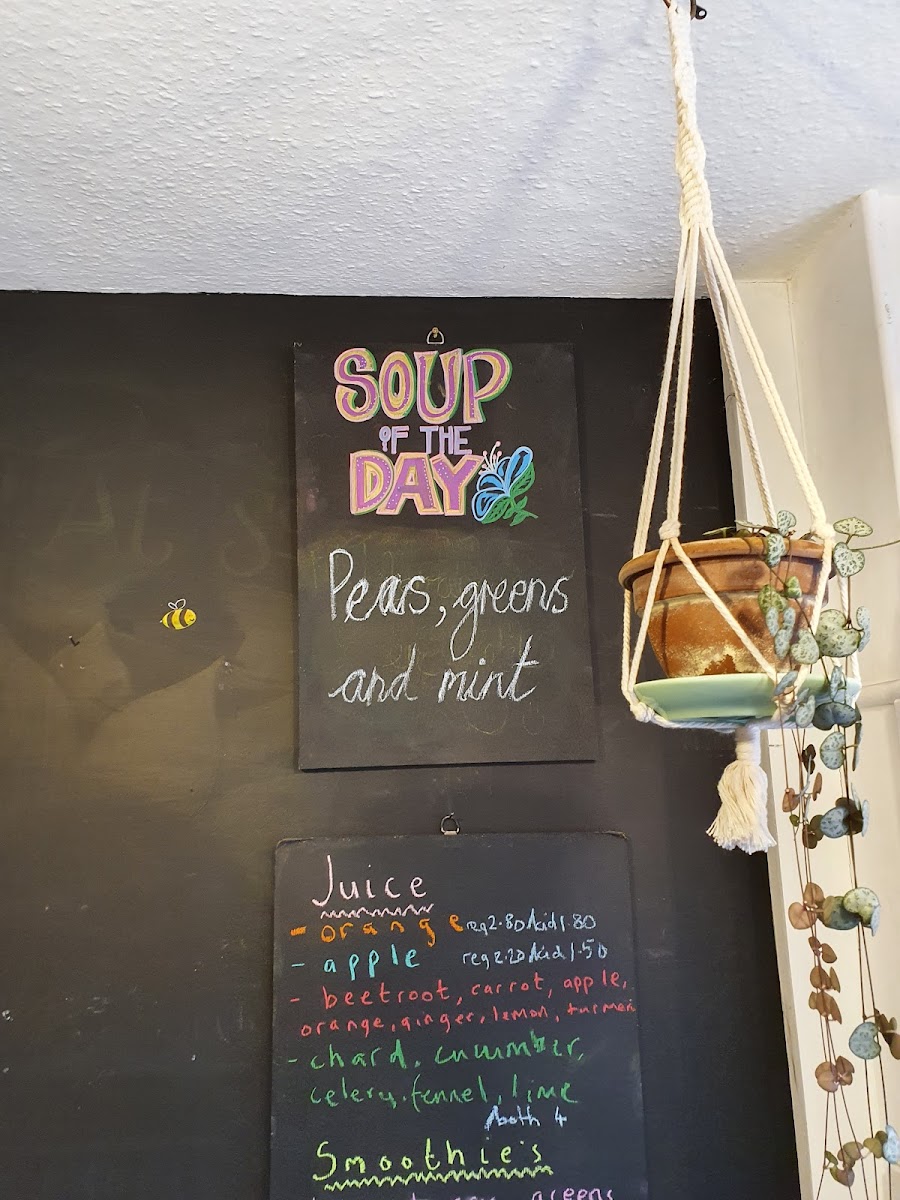 SOUP
OF THE
DAY
Peas, greens
and mint
Juice
- orange reg 2.80 / kid 1.80
- apple reg 2.20 / kid 1.50
- beetroot, carrot, apple,
orange, ginger, lemon, turmeric
- chard, cucumber,
celery, fennel, lime
/both 4
Smoothie's
greens